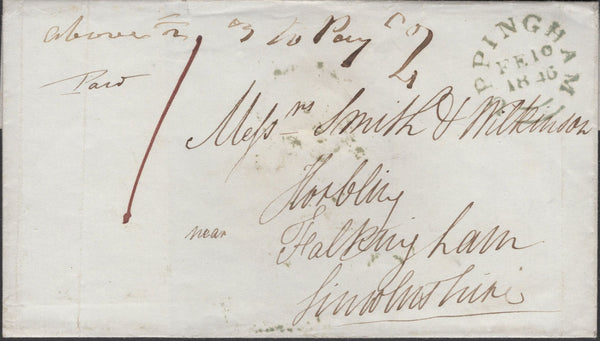 above ½ 3 to Pay
Paid
UPPINGHAM
FE 10
1846
Messrs Smith & Wilkinson
Horbling
near Falkingham
Lincolnshire